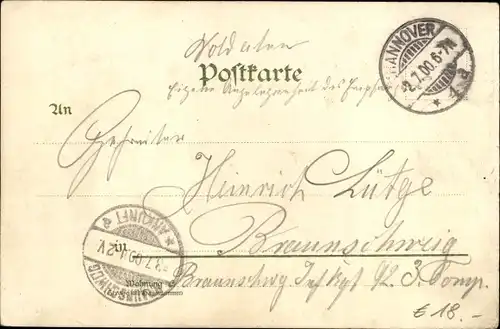 Soldaten
Postkarte
Eigene Angelegenheit des Empfängers
HANNOVER
2.7.00.6-7N
* 1. d
An
Gefreiter
Heinrich Lütge
in Braunschweig
ANKUNFT
3.7.00
BRAUNSCHWEIG
Wohnung
Braunschwg Inf Rgt 92 3. Comp.
€ 18.-